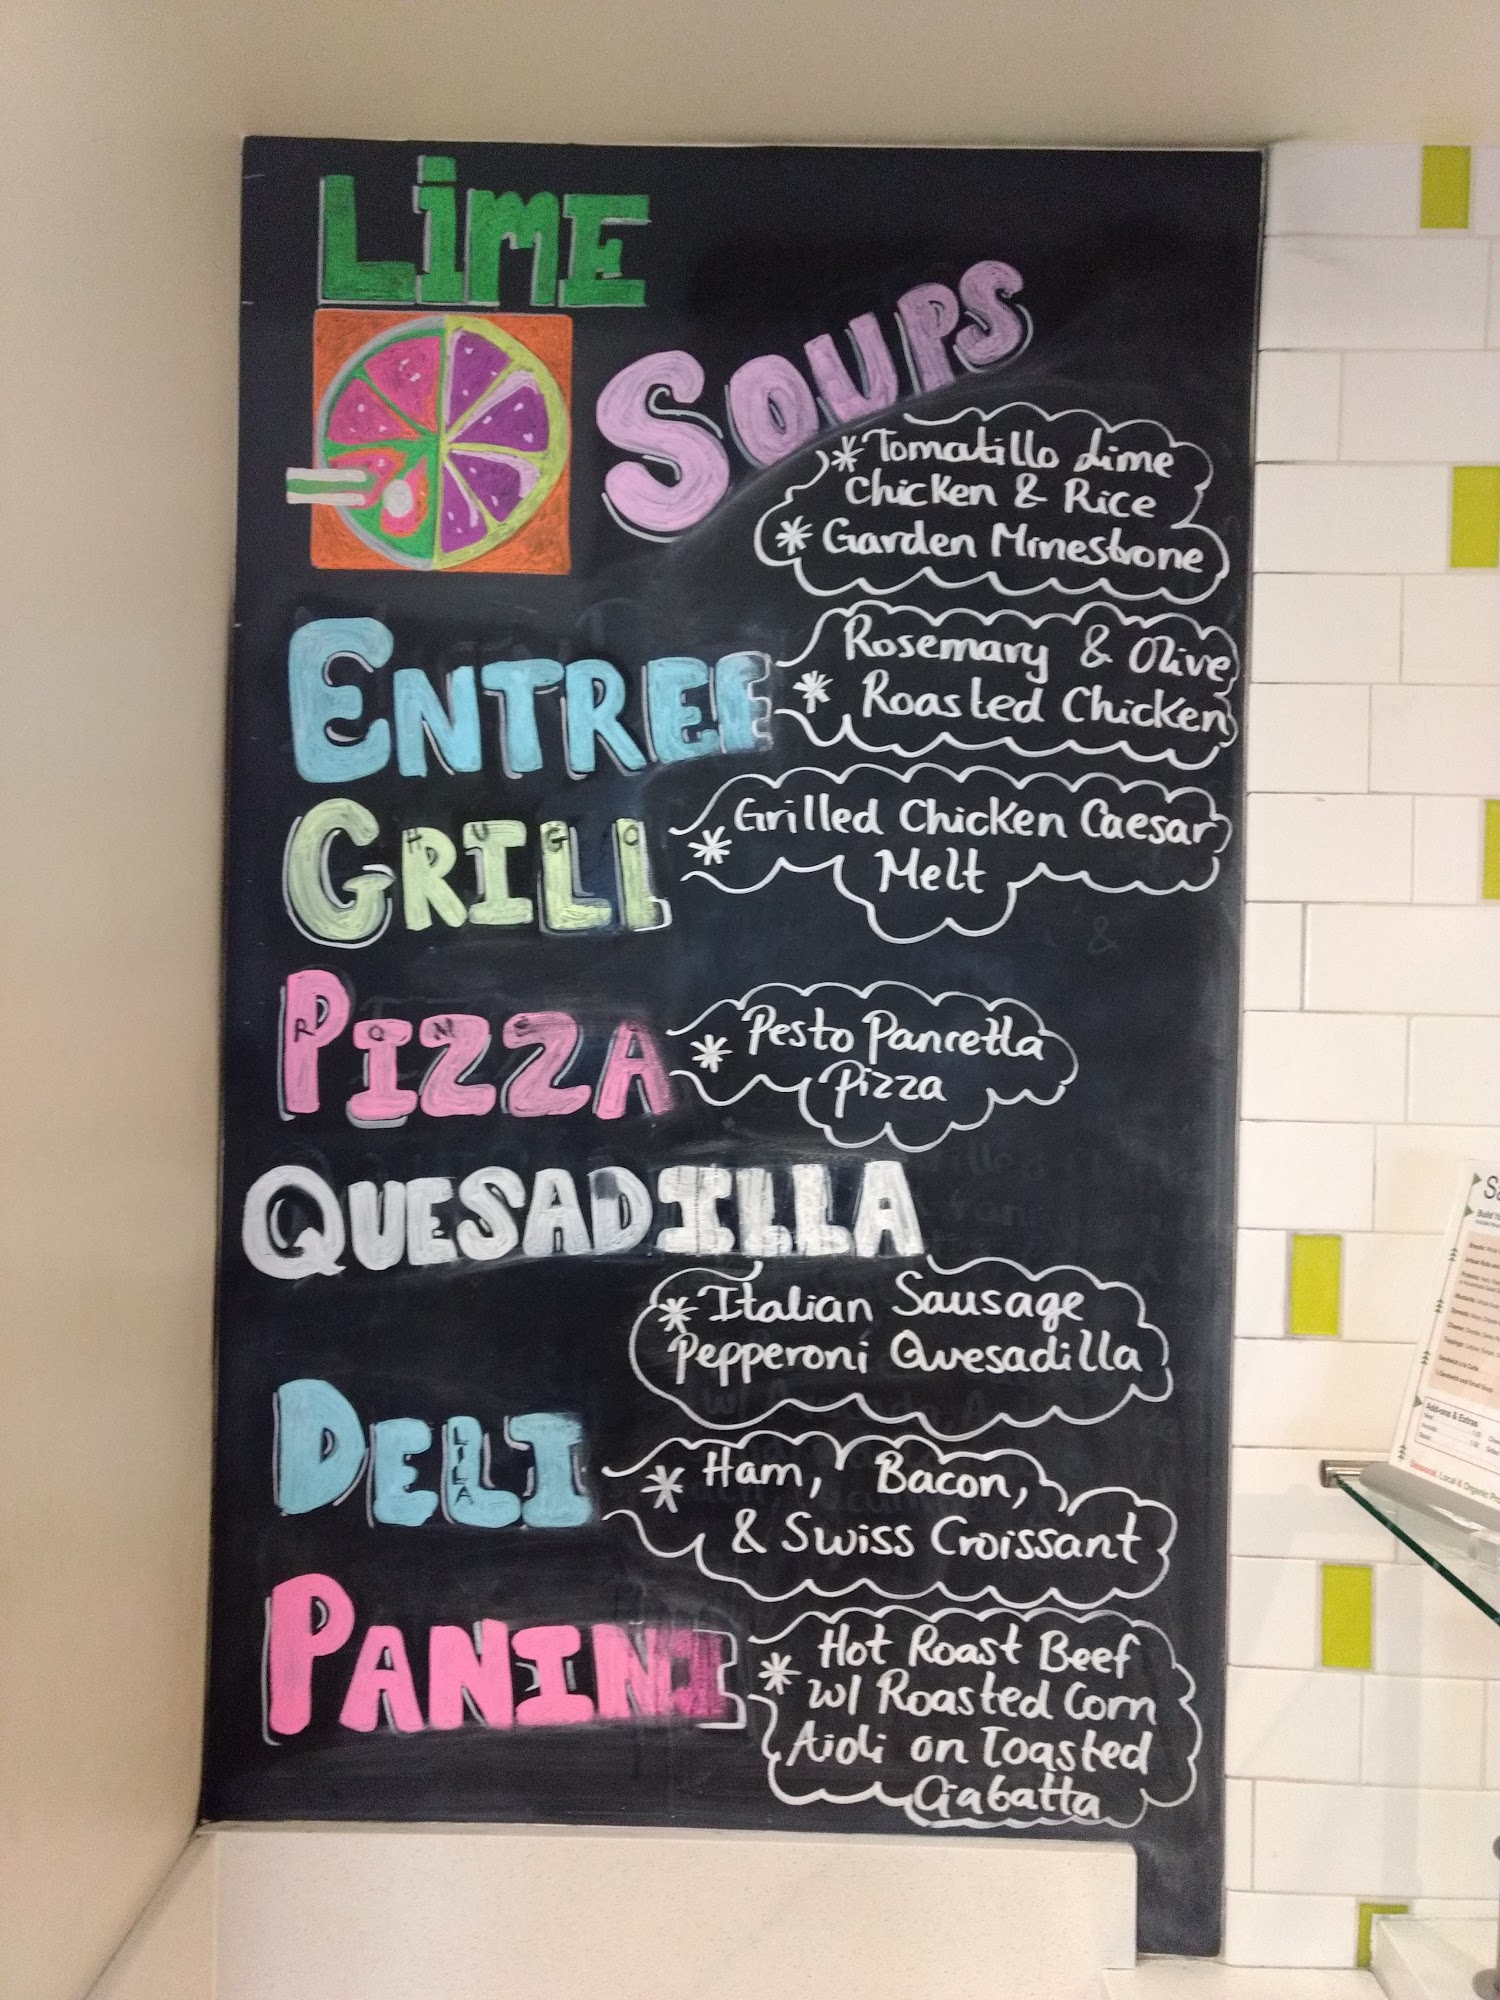 LiME
SOUPS
* Tomatillo Lime
Chicken & Rice
* Garden Minestrone
ENTREE
Rosemary & Olive
* Roasted Chicken
GRILL
HUGO
Grilled Chicken Caesar
* Melt
PIZZA
* Pesto Pancetta
Pizza
QUESADILLA
* Italian Sausage
Pepperoni Quesadilla
DELI
LILA
* Ham, Bacon,
& Swiss Croissant
PANINI
Hot Roast Beef
* w/ Roasted Corn
Aioli on Toasted
Ciabatta
Add-ons & Extras
Seasonal, Local & Organic